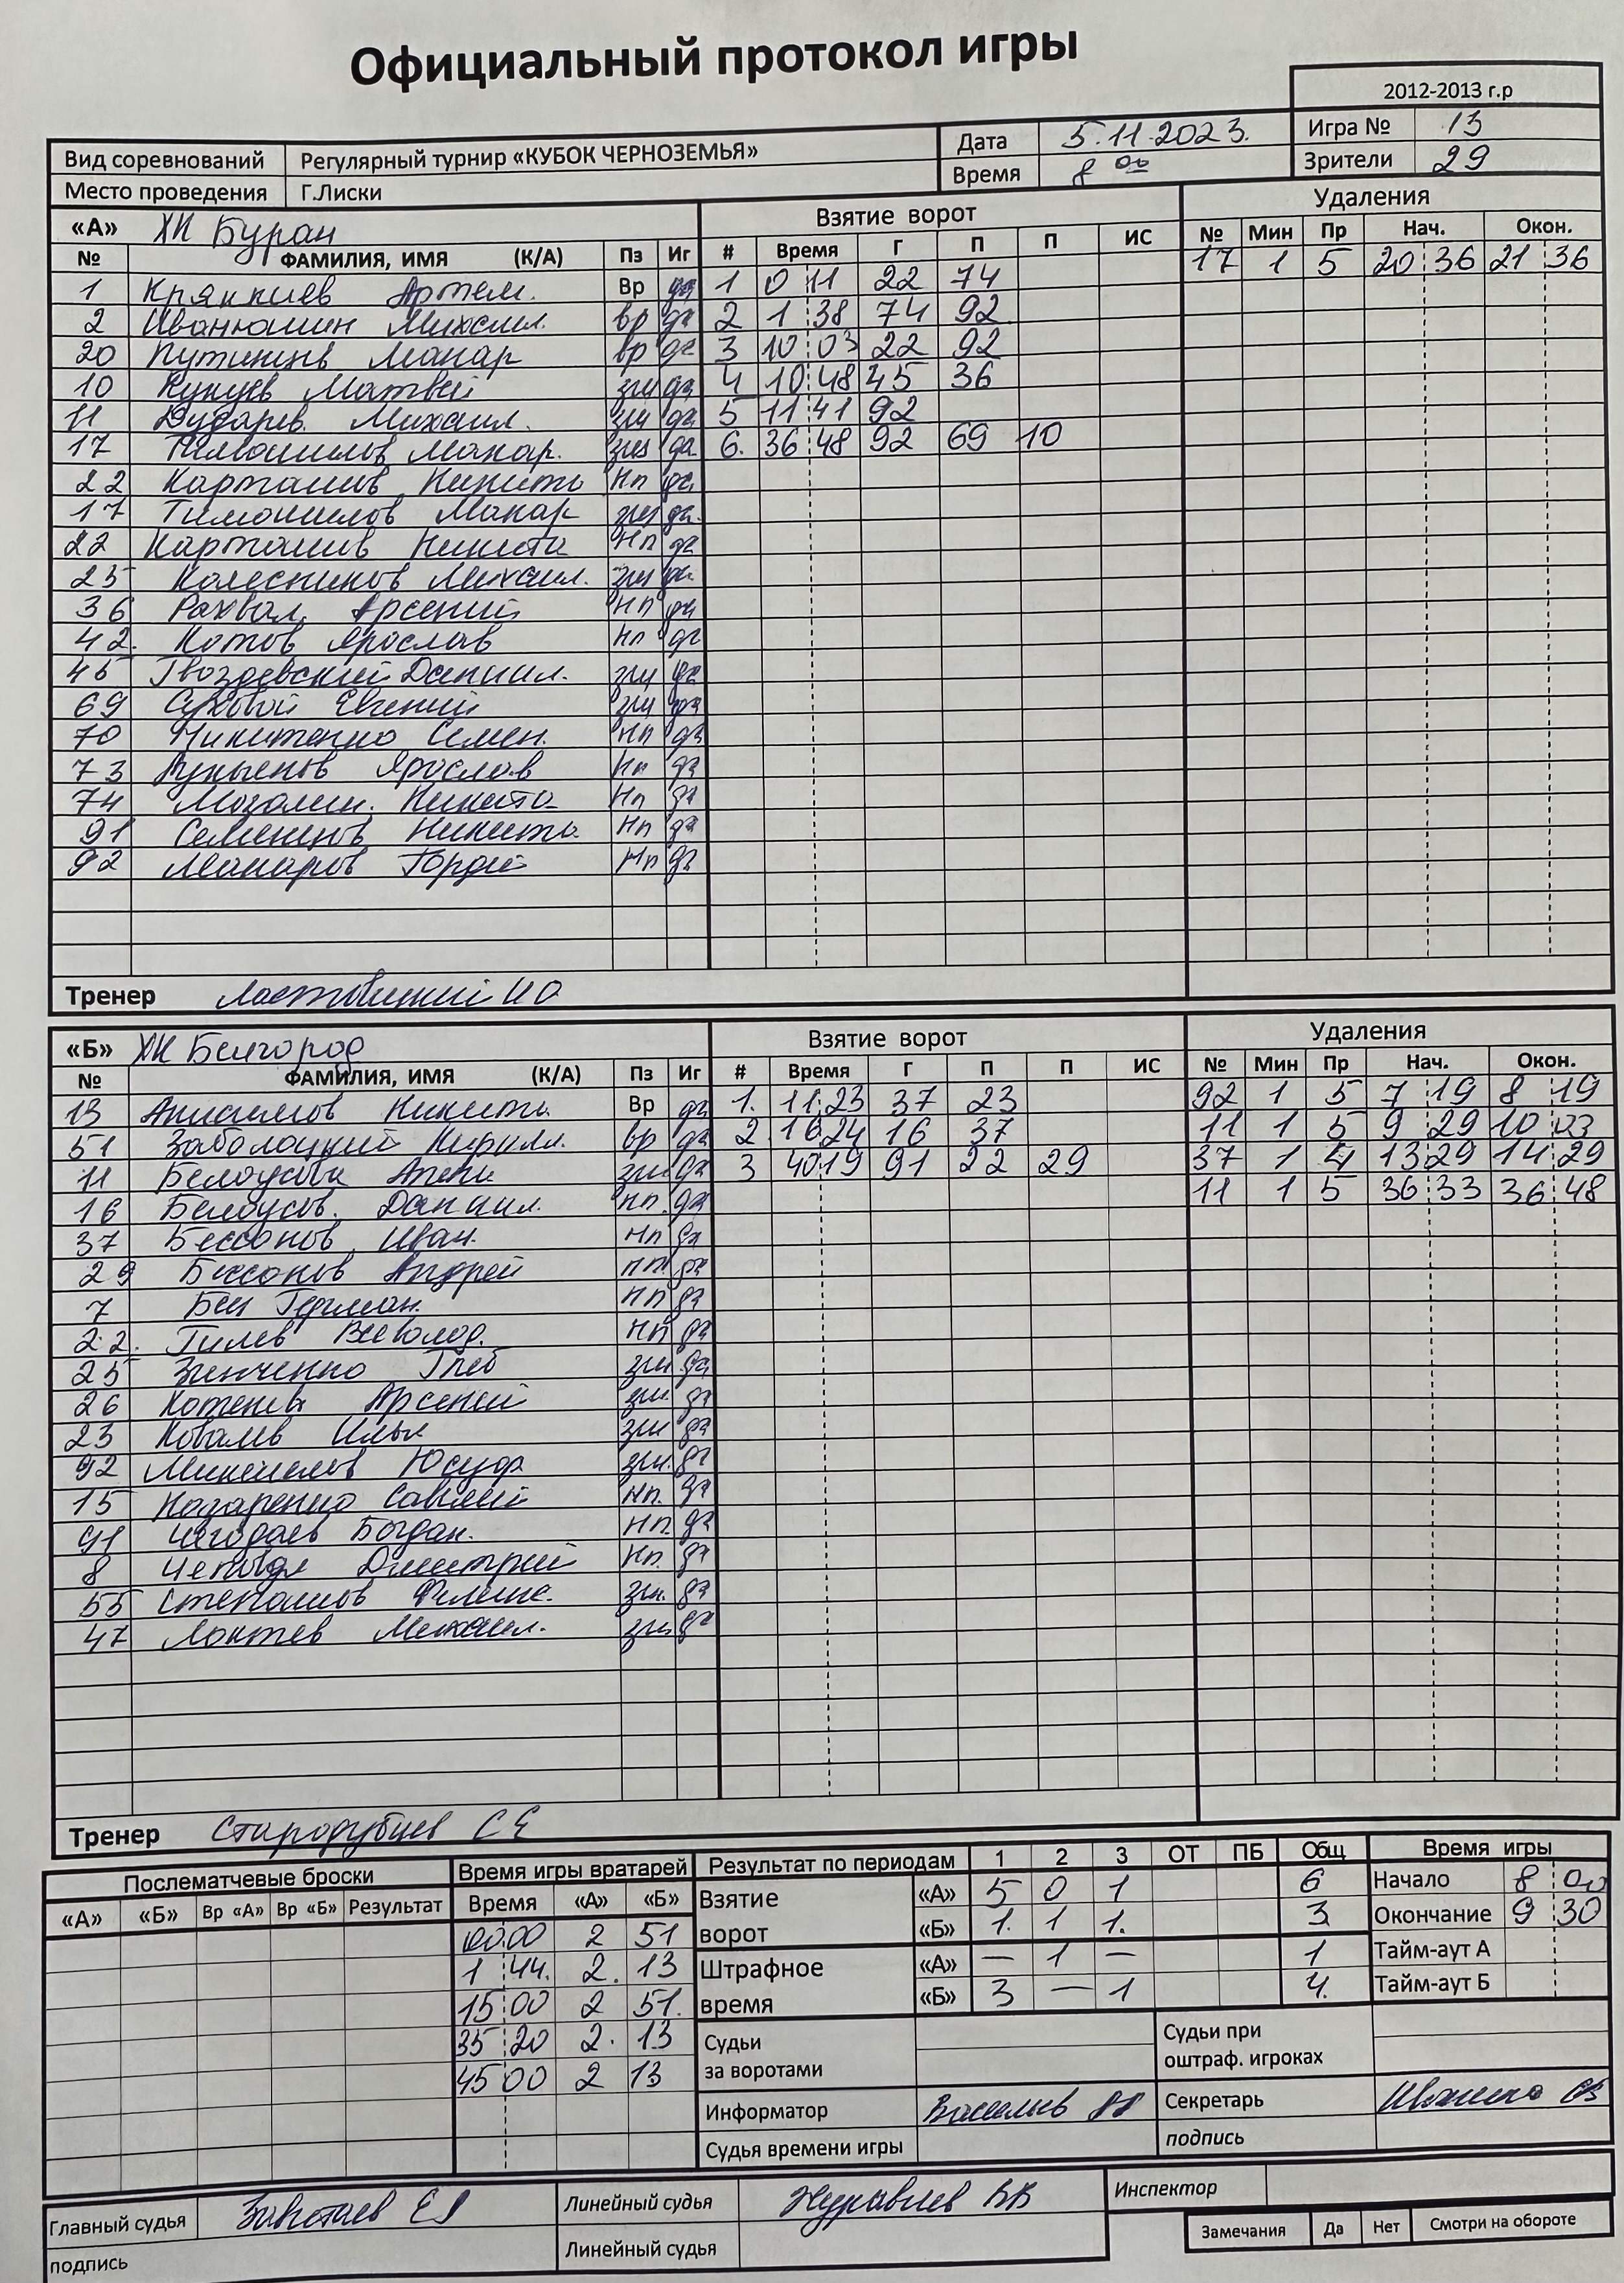 Официальный протокол игры
2012-2013 г.р
Вид соревнований Регулярный турнир «КУБОК ЧЕРНОЗЕМЬЯ» Дата 5.11.2023. Игра № 13
Место проведения Г.Лиски Время 8 00 Зрители 29
«А» ХК Буран Взятие ворот Удаления
№ ФАМИЛИЯ, ИМЯ (К/А) Пз Иг # Время Г П П ИС № Мин Пр Нач. Окон.
1 Артем. Вр да 1 0 11 22 74 17 1 5 20 36 21 36
2 Иванюшин Михаил. вр да 2 1 38 74 92
20 Путинцев Макар вр да 3 10 03 22 92
10 Матвей зщ да 4 10 48 45 36
11 Дударев Михаил. зщ да 5 11 41 92
17 Тимошилов Макар. зщ да 6. 36 48 92 69 10
22 Карташов Никита Нп да
17 Тимошилов Макар зщ да
22 Карташов Никита Нп да
25 Колесников Михаил. зщ да
36 Рахвал Арсений Нп да
42. Котов Ярослав Нп да
45 Гвоздевский Даниил. зщ да
69 Суховой Евгений зщ да
70 Никитенко Семен. Нп да
73 Лукьянов Ярослав Нп да
74 Мозолин. Никита Нп да
91 Семенцов Никита Нп да
92 Макаров Гордей Нп да
Тренер Ластовицкий
«Б» ХК Белгород Взятие ворот Удаления
№ ФАМИЛИЯ, ИМЯ (К/А) Пз Иг # Время Г П П ИС № Мин Пр Нач. Окон.
13 Анисимов Никита Вр да 1. 11 23 37 23 92 1 5 7 19 8 19
51 Заболоцкий Кирилл. вр да 2. 16 24 16 37 11 1 5 9 29 10 03
11 Белоусова зщ да 3 40 19 91 22 29 37 1 4 13 29 14 29
16 Белоусов. Даниил. нп. да 11 1 5 36 33 36 48
37 Бессонов Иван. Нп да
29 Бессонов Андрей нп. да
7 Бец Герман. Нп да
22. Гилев Всеволод. Нп да
25 Зинченко Глеб зщ да
26 Котенев Арсений зщ. да
23 Ковалев Илья зщ да
92 Юсуф зщ. да
15 Назаренко Савелий Нп. да
91 Чегодаев Богдан. Нп. да
8 Дмитрий Нп. да
55 Феликс. зщ. да
47 Локтев Михаил. зщ да
Тренер Стародубцев С Е
Послематчевые броски Время игры вратарей Результат по периодам 1 2 3 ОТ ПБ Общ Время игры
«А» «Б» Вр «А» Вр «Б» Результат Время «А» «Б» Взятие ворот «А» 5 0 1 6 Начало 8 00
00 00 2 51 «Б» 1. 1 1. 3 Окончание 9 30
1 44. 2. 13 Штрафное время «А» — 1 — 1 Тайм-аут А
15 00 2 51. «Б» 3 — 1 4. Тайм-аут Б
35 20 2. 13 Судьи за воротами Судьи при оштраф. игроках
45 00 2 13 Информатор Васильев Секретарь
Судья времени игры подпись
Главный судья Линейный судья Журавлев ВВ Инспектор
подпись Линейный судья Замечания Да Нет Смотри на обороте